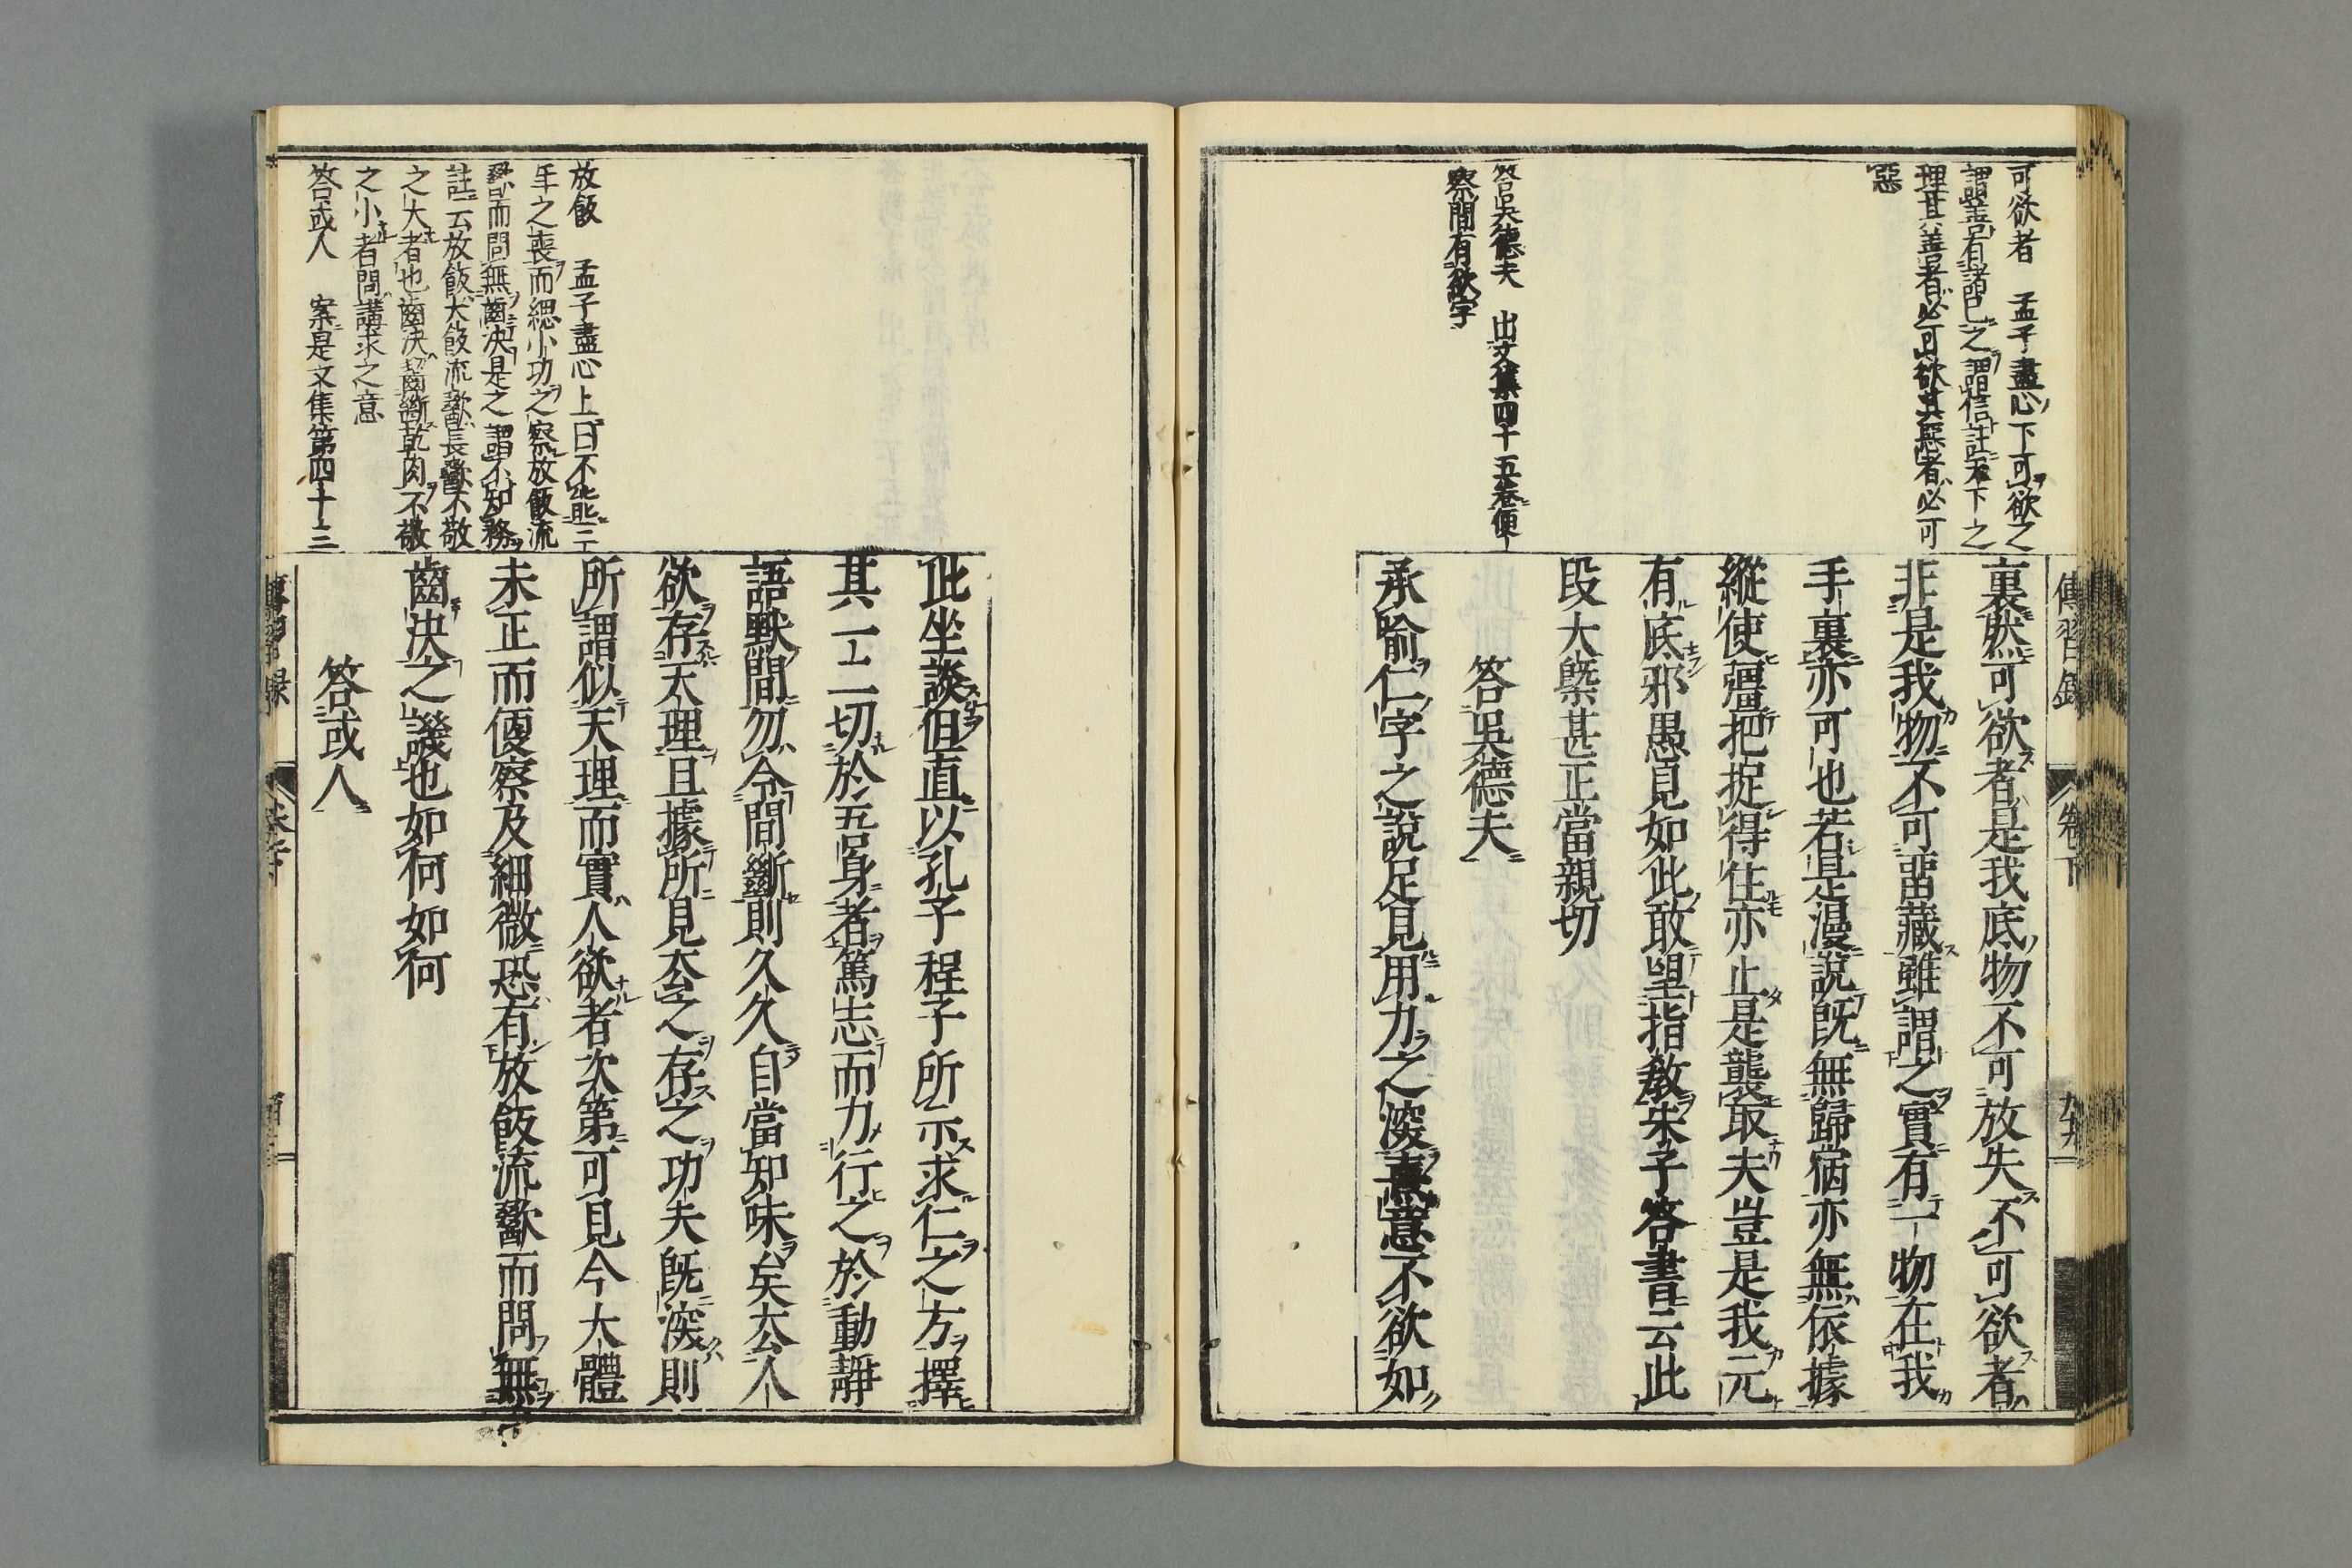 可欲者 孟子盡心下可欲之
謂善有諸已之謂信註天下之
理其善者必可欲其惡者必可
惡
答吳德夫 出文集四十五卷便
察間有欲字
裏然可欲者是我底物不可放失不可欲者
非是我物不可畱藏雖謂之實有一物在我
手裏亦可也若是漫說旣無歸宿亦無依據
縱使彊把捉得住亦止是襲取夫豈是我元
有底邪愚見如此敢望指敎朱子答書云此
段大槩甚正當親切
答吳德夫
承喻仁字之說足見用力之深熹意不欲如
傳習錄 卷下
放飯 孟子盡心上曰不能三
年之喪而緦小功之察放飯流
歠而問無齒決是之謂不知務
註云放飯大飯流歠長歠不敬
之大者也齒決齧斷乾肉不敬
之小者問講求之意
答或人 案是文集第四十三
此坐談但直以孔子程子所示求仁之方擇
其一二切於吾身者篤志而力行之於動靜
語默間勿令間斷則久久自當知味矣去人
欲存天理且據所見去之存之功夫旣深則
所謂似天理而實人欲者次第可見今大體
未正而便察及細微恐有放飯流歠而問無
齒決之譏也如何如何
答或人